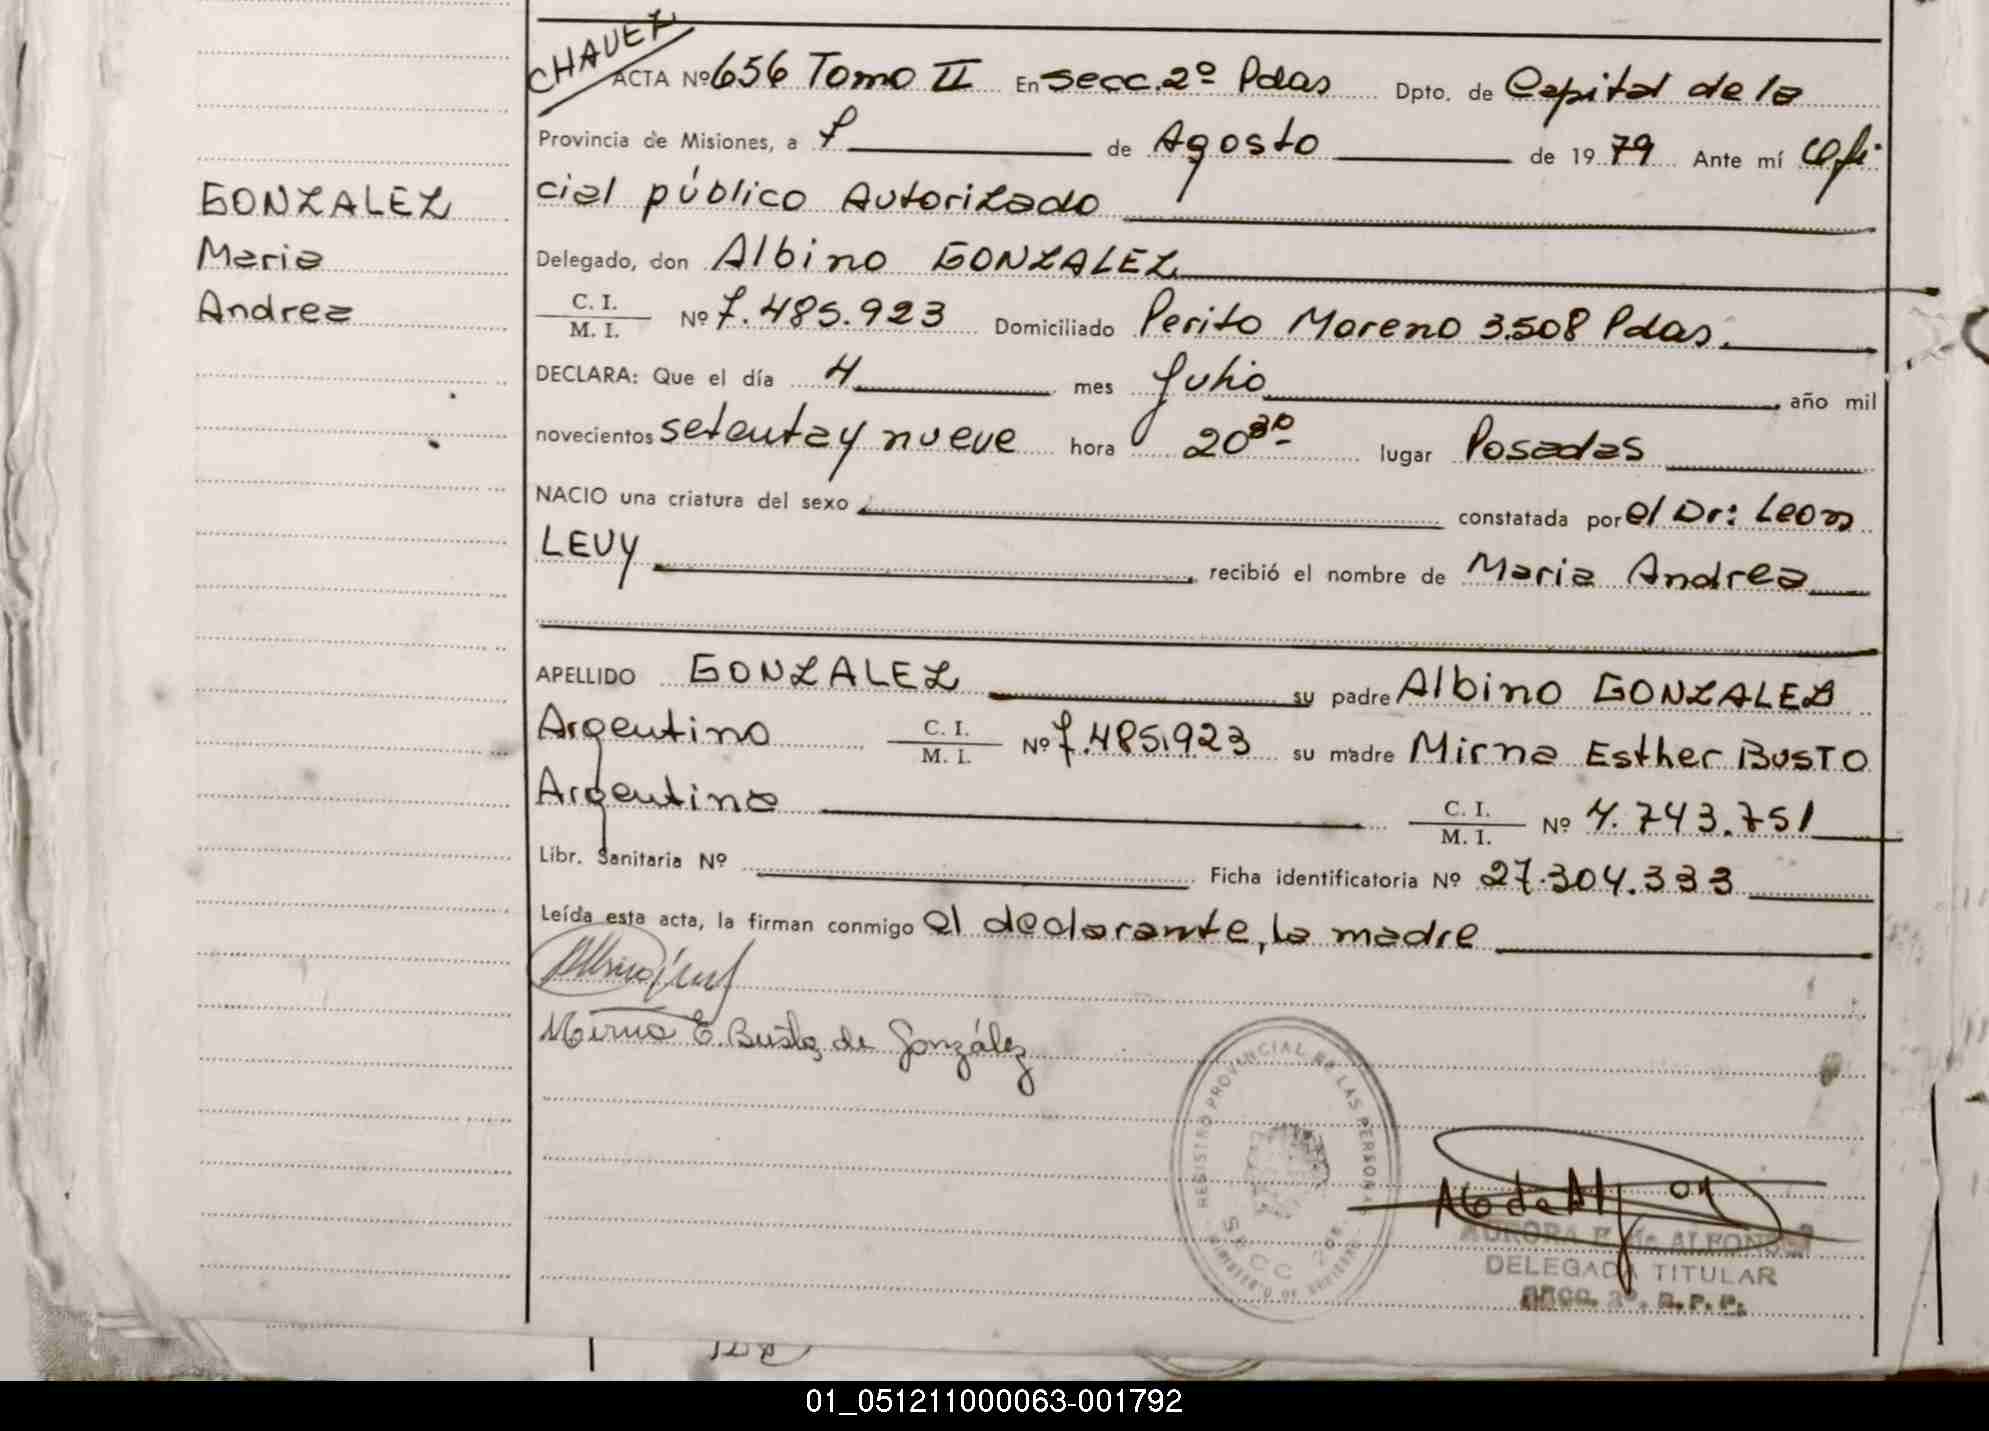 CHAVEZ
ACTA Nº 656 Tomo II En Secc. 2º Pdas Dpto. de Capital de la
Provincia de Misiones, a 7 de Agosto de 1979 Ante mí Ofi-
cial público Autorizado
GONZALEZ
Maria
Andrea
Delegado, don Albino GONZALEZ
C. I.
M. I. Nº 7.485.923 Domiciliado Perito Moreno 3.508 Pdas.
DECLARA: Que el día 4 mes Julio año mil
novecientos setenta y nueve hora 20 30 lugar Posadas
NACIO una criatura del sexo constatada por el Dr: Leon
LEVY recibió el nombre de Maria Andrea
APELLIDO GONZALEZ su padre Albino GONZALEZ
Argentino C. I.
M. I. Nº 7.485.923 su madre Mirna Esther BUSTO
Argentina C. I.
M. I. Nº 4.743.751
Libr. Sanitaria Nº Ficha identificatoria Nº 27.304.333
Leída esta acta, la firman conmigo el declarante, la madre
Mirna E. Busto de González
REGISTRO PROVINCIAL DE LAS PERSONAS
SECC 2da.
MINISTERIO DE GOBIERNO
AURORA F. de ALFONSO
DELEGADA TITULAR
SECC. 2º. R. P. P.
01_051211000063-001792